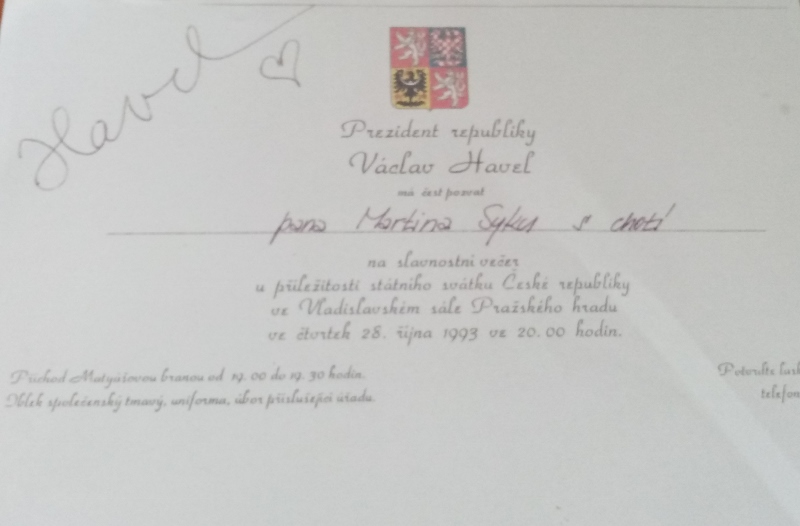 Havel
Prezident republiky
Václav Havel
má čest pozvat
pana Martina Syku s chotí
na slavnostní večer
u příležitosti státního svátku České republiky
ve Vladislavském sále Pražského hradu
ve čtvrtek 28. října 1993 ve 20.00 hodin.
Příchod Matyášovou branou od 19.00 do 19.30 hodin.
Oblek společenský tmavý, uniforma, úbor příslušející úřadu.
Potvrďte lask
telefon